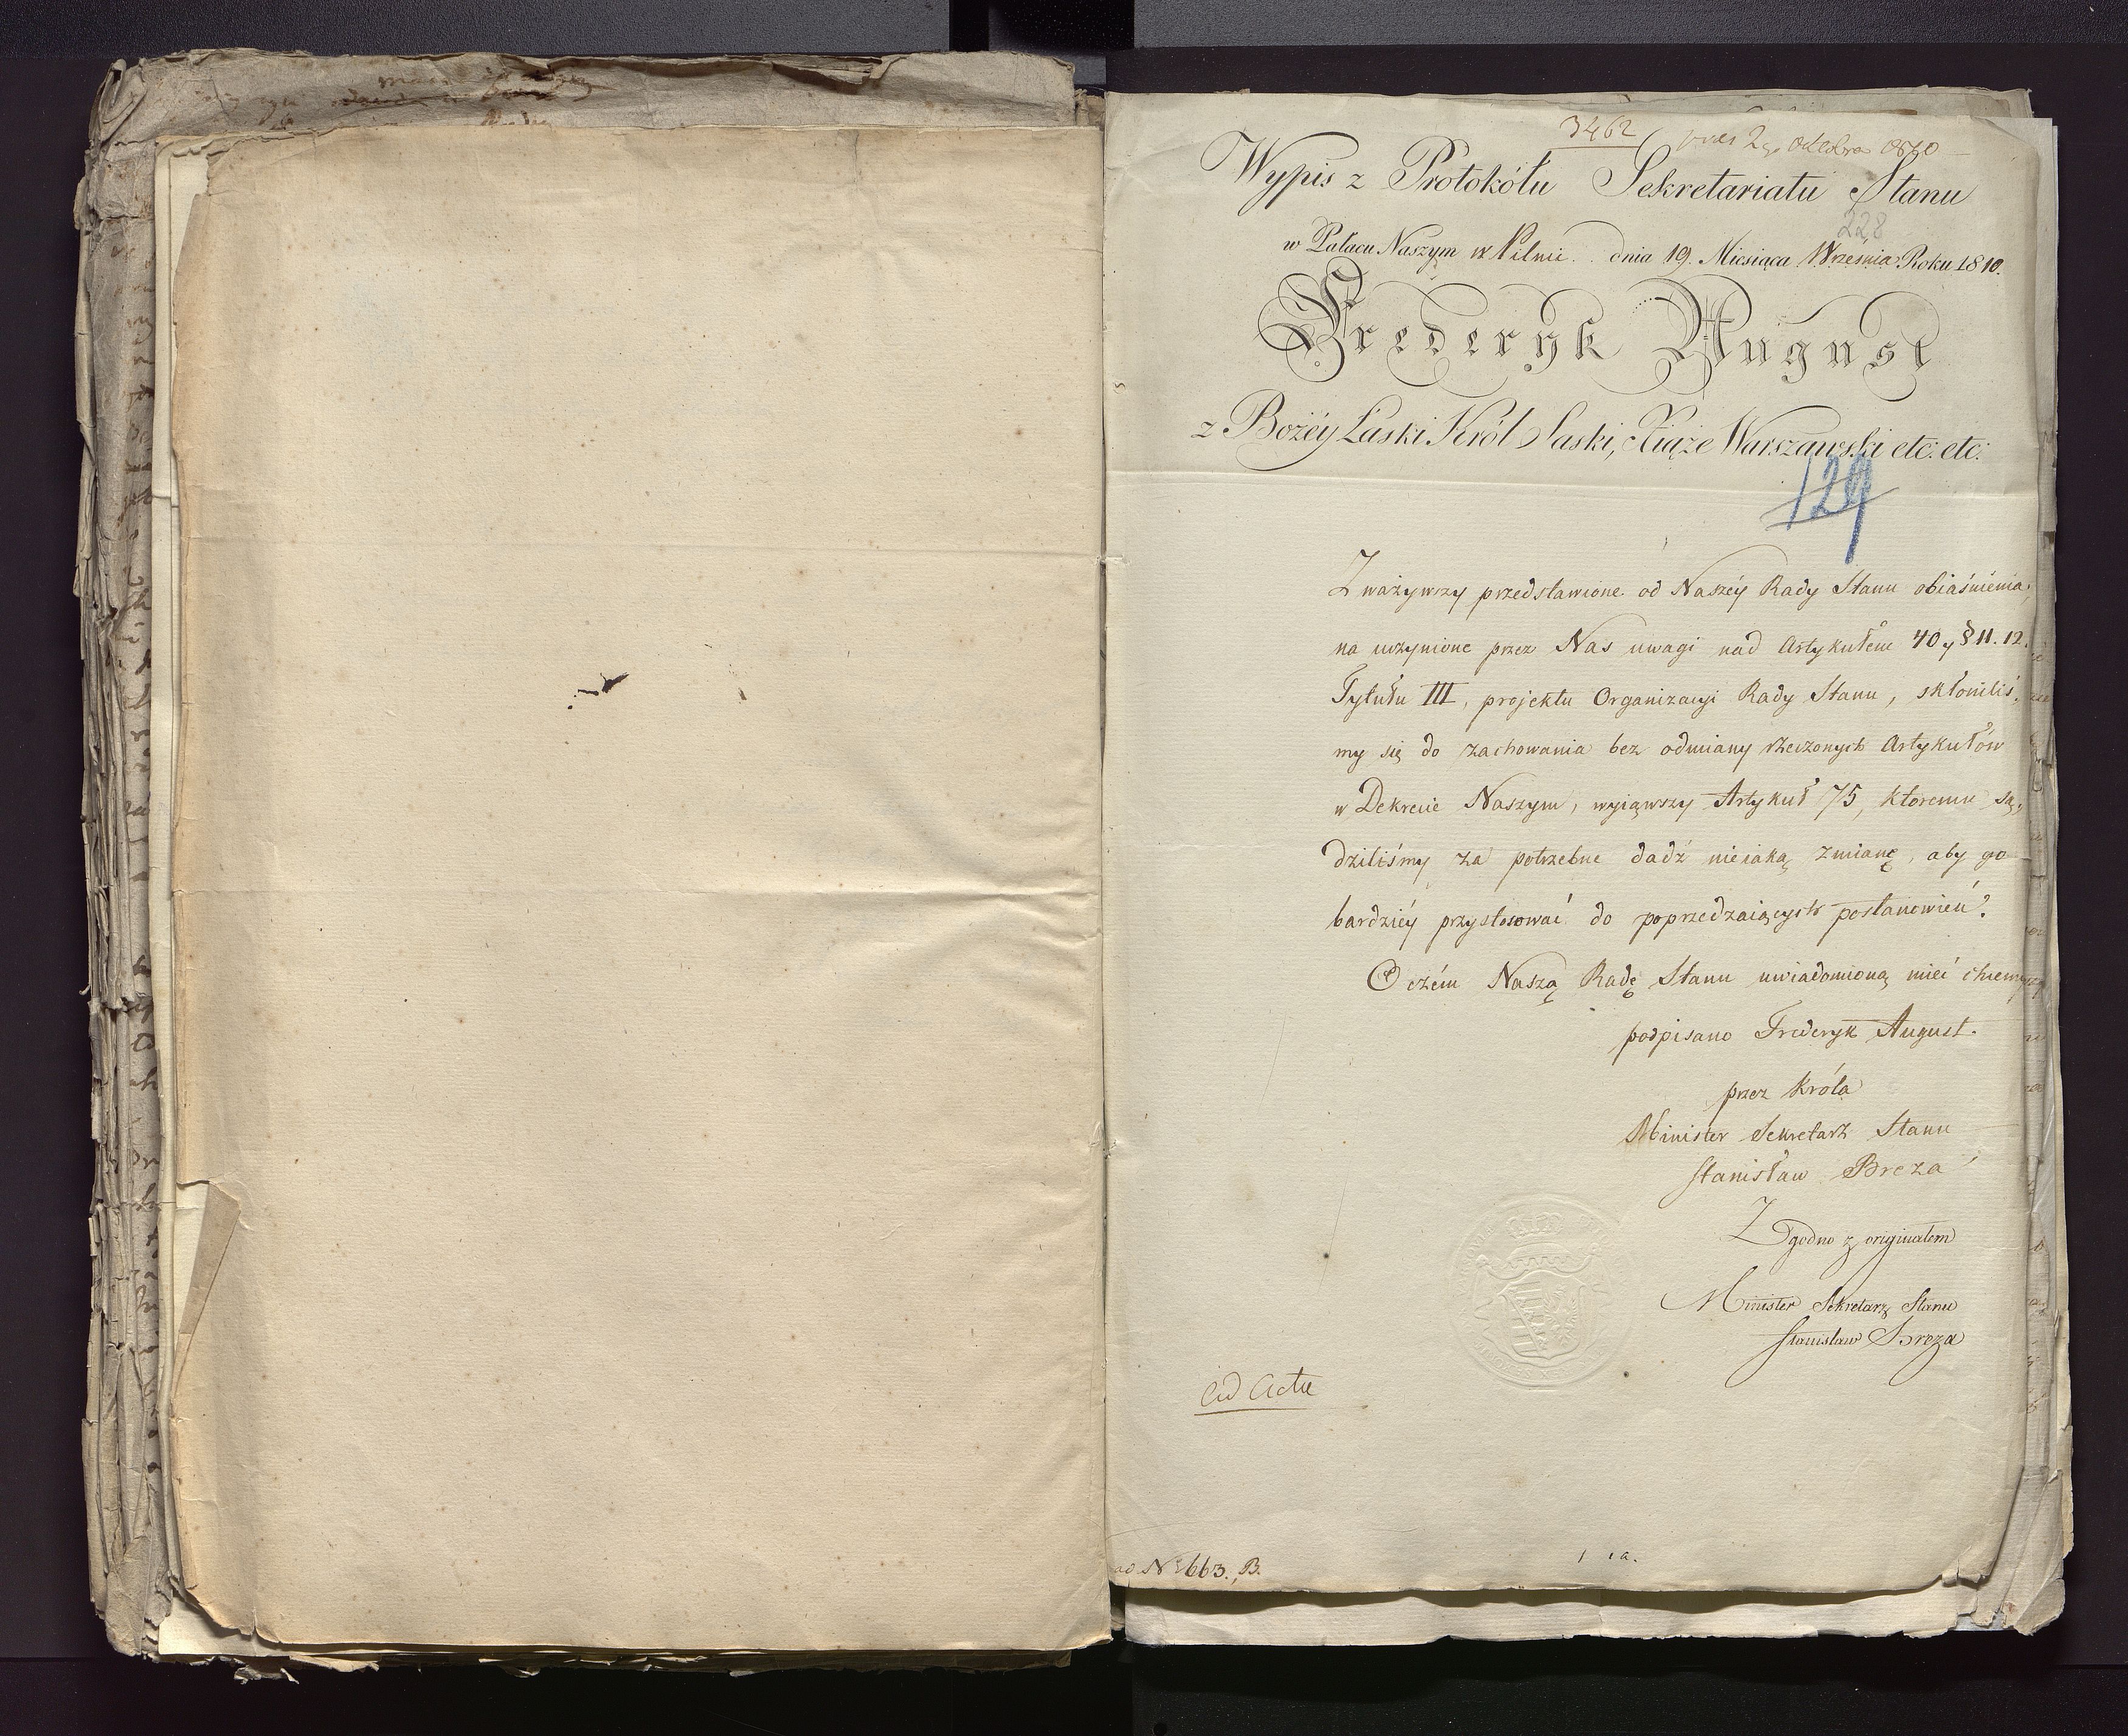 3462
praes 2go Octobra 1810
Wypis z Protokółu Sekretariatu Stanu
228
w Pałacu Naszym w Pilnic. dnia 19. Miesiąca Września Roku 1810.
Frederyk August
z Bożéy Łaski Król Saski, Xiąże Warszawski etc: etc:
129
Zważywszy przedstawione od Naszéy Rady Stanu obiaśnienia,
na uczynione przez Nas uwagi nad Artykułem 40 y § 11. 12.
Tytułu III, projektu Organizacyi Rady Stanu, skłoniliś-
my się do zachowania bez odmiany rzeczonych Artykułów
w Dekrecie Naszym, wyiąwszy Artykuł 75, któremu są-
dziliśmy za potrzebne dadź nieiaką zmianę, aby go
bardziéy przystosować do poprzedzaiących postanowień.
O czém Naszą Radę Stanu uwiadomioną mieć chcemy
podpisano Frederyk August.
przez Króla
Minister Sekretarz Stanu
Stanisław Breza
Zgodno z originałem
Minister Sekretarz Stanu
Stanisław Breza
Ad Acta
ad N 663. B.